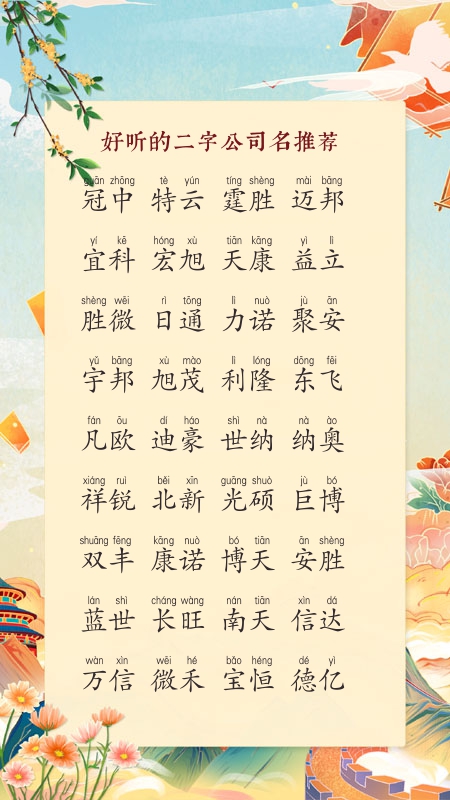 好听的二字公司名推荐
guān zhōng tè yún tíng shèng mài bāng
冠中 特云 霆胜 迈邦
yí kē hóng xù tiān kāng yì lì
宜科 宏旭 天康 益立
shèng wēi rì tōng lì nuò jù ān
胜微 日通 力诺 聚安
yǔ bāng xù mào lì lóng dōng fēi
宇邦 旭茂 利隆 东飞
fán ōu dí háo shì nà nà ào
凡欧 迪豪 世纳 纳奥
xiáng ruì běi xīn guāng shuò jù bó
祥锐 北新 光硕 巨博
shuāng fēng kāng nuò bó tiān ān shèng
双丰 康诺 博天 安胜
lán shì cháng wàng nán tiān xìn dá
蓝世 长旺 南天 信达
wàn xìn wēi hé bǎo héng dé yì
万信 微禾 宝恒 德亿